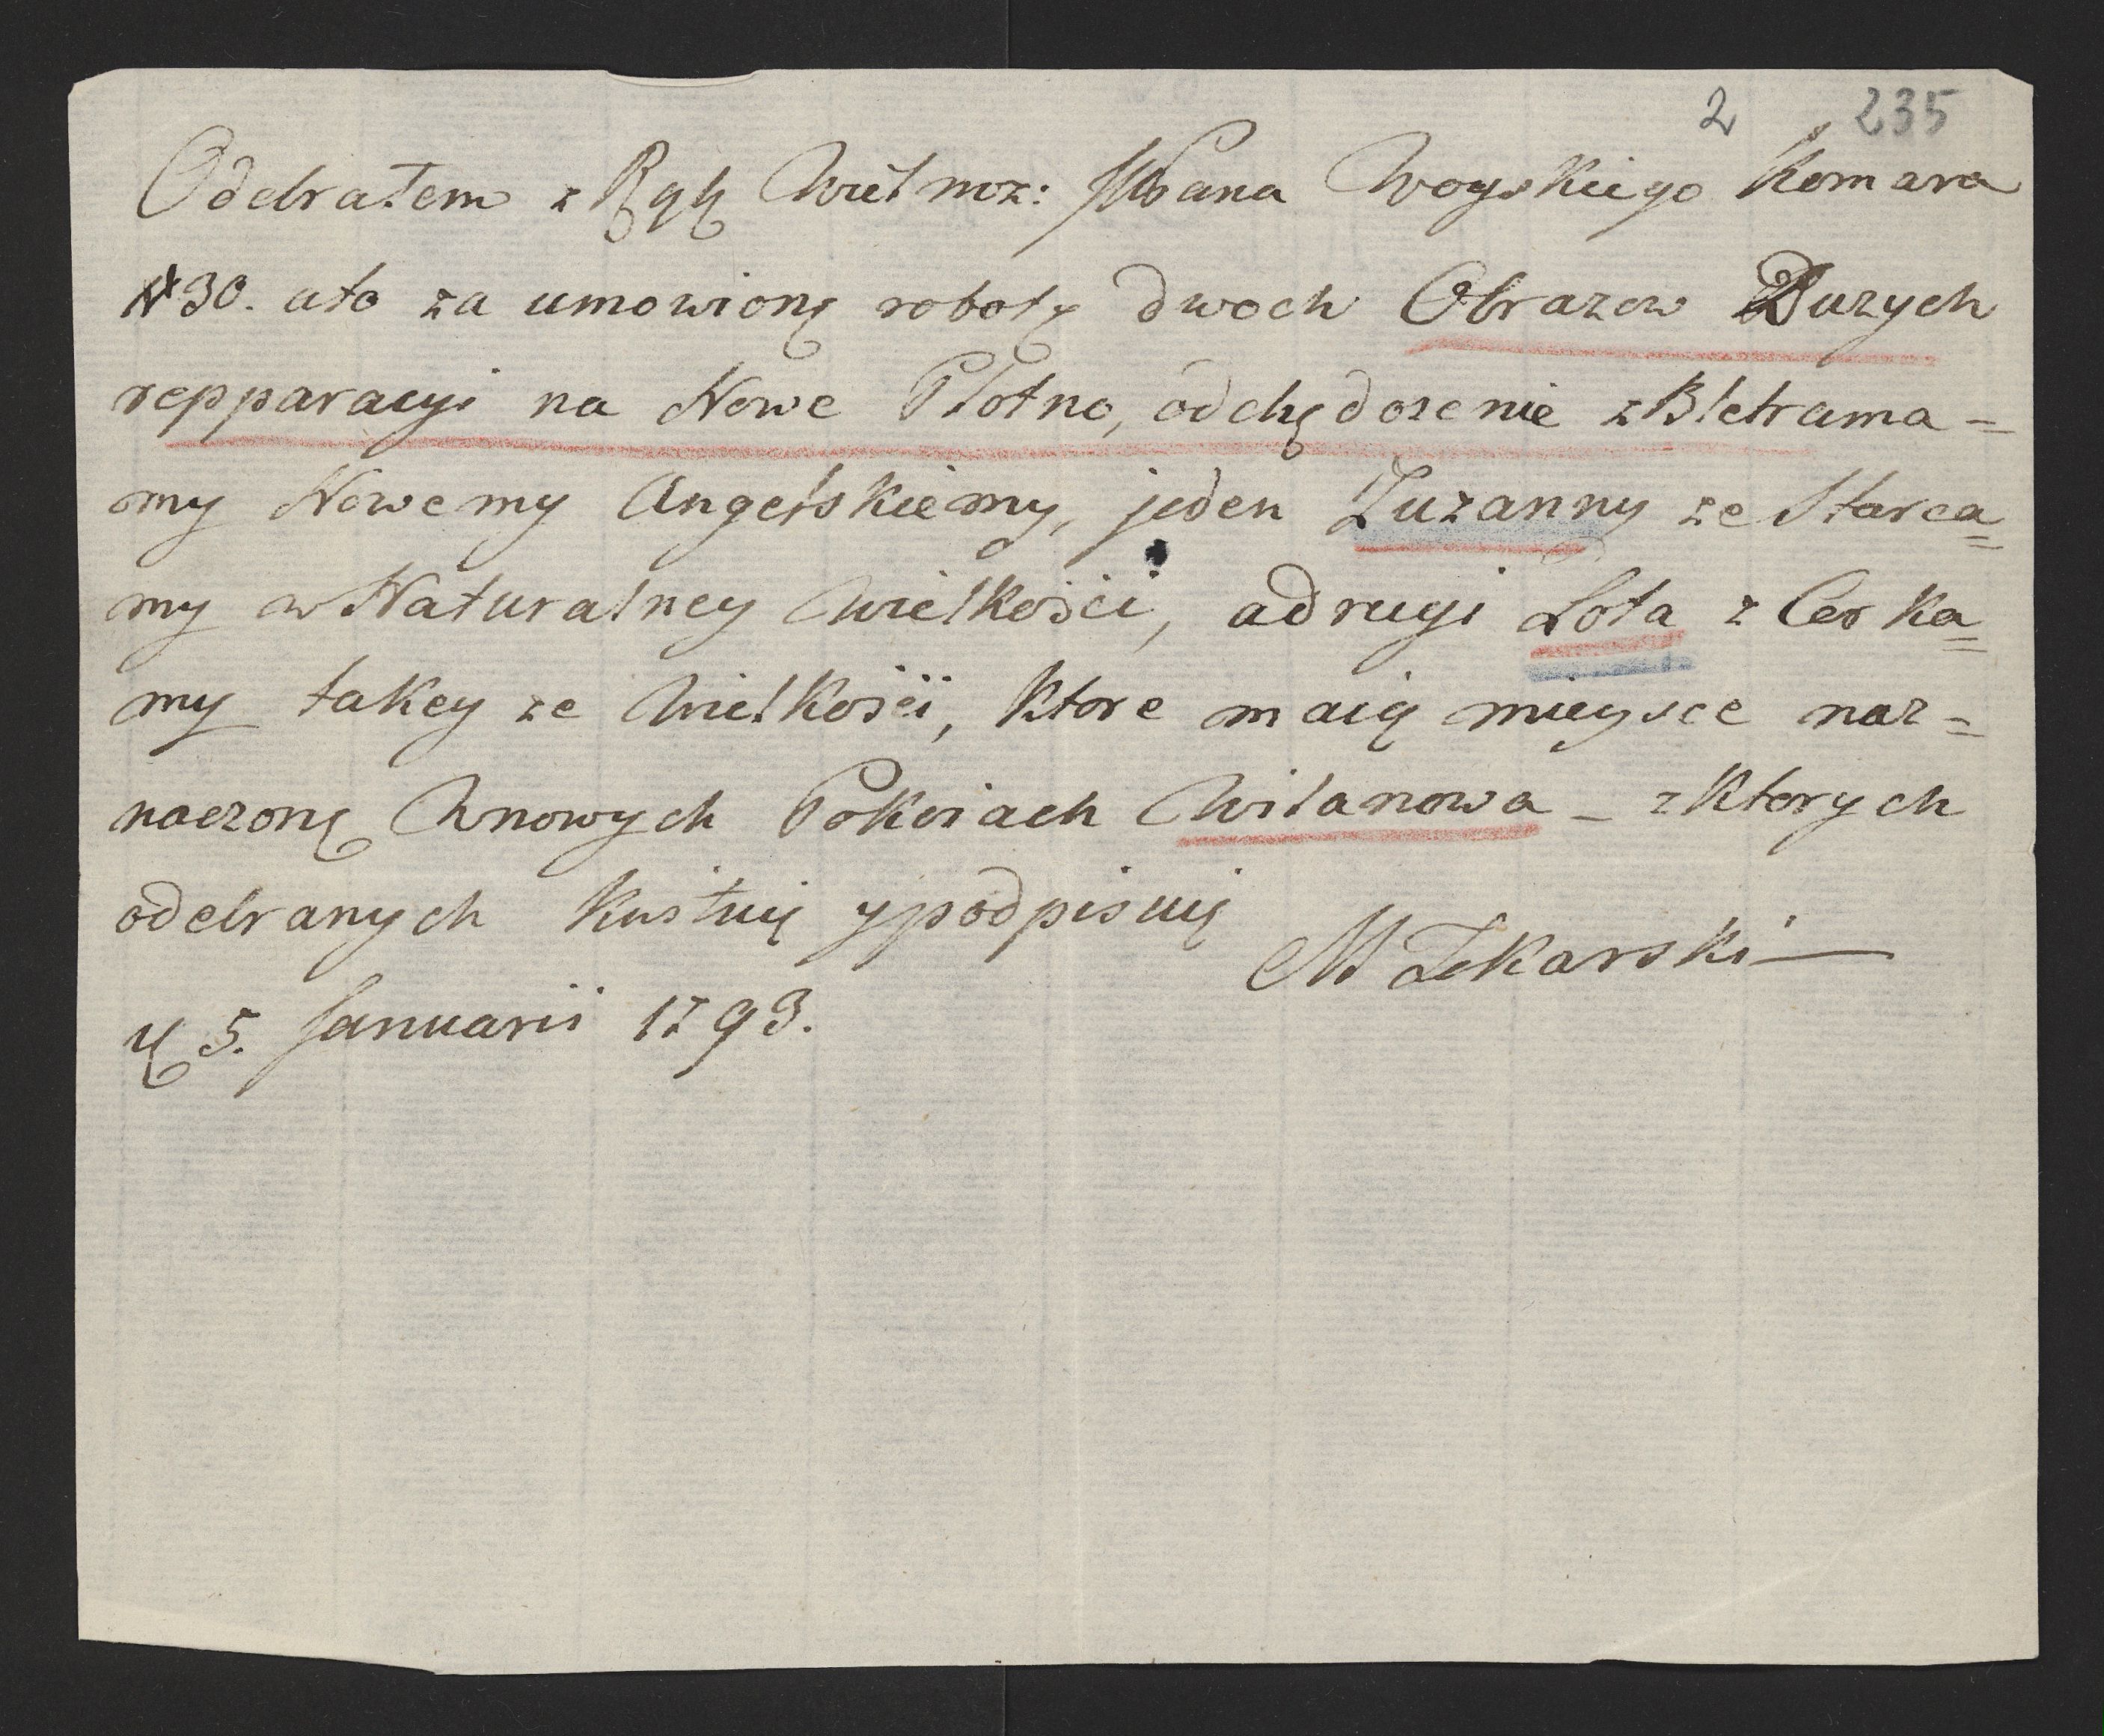 2 235
Odebrałem z Rąk Wielmoz: JWPana Woyskiego Komara
# 30. ato za umowioną robotę dwoch Obrazow Duzych
repparacyi na Nowe Płotno, odchędozenie zBletrama=
my Nowemy Angelskiemy, jeden Zuzanny ze Starca=
my w Naturalney Wielkości, adrugi Lota z Corka=
my takey ze Wielkości, Ktore maią mieysce naz=
naczonę Wnowych Pokoiach Wilanowa – zKtorych
odebranych Kwituię ypodpisuię
M Lekarski
5. Januarii 1793.